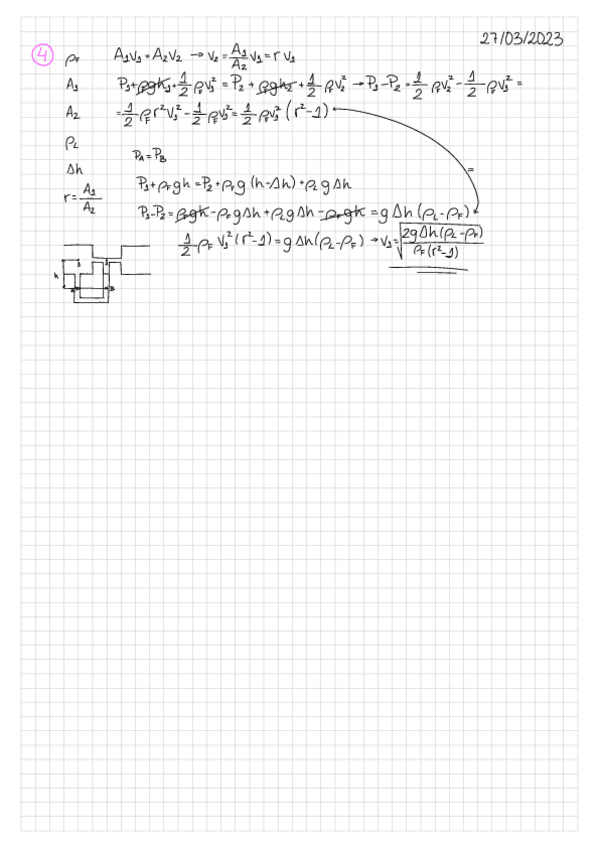 27/03/2023
4 ρF A₁v₁ = A₂v₂ → v₂ = A₁/A₂ v₁ = r v₁
A₁ P₁ + ρFgh₁ + 1/2 ρFv₁² = P₂ + ρFgh₂ + 1/2 ρFv₂² → P₁ - P₂ = 1/2 ρFv₂² - 1/2 ρFv₁² =
A₂ = 1/2 ρF r²v₁² - 1/2 ρFv₁² = 1/2 ρFv₁² (r² - 1)
ρL
PA = PB
Δh =
P₁ + ρF gh = P₂ + ρF g (h - Δh) + ρL g Δh
r = A₁/A₂
P₁ - P₂ = ρFgh - ρF gΔh + ρL gΔh - ρFgh = g Δh (ρL - ρF)
1/2 ρF v₁² (r² - 1) = g Δh (ρL - ρF) → v₁ = √(2gΔh(ρL - ρF)/ρF(r² - 1))
1 2
h
A B